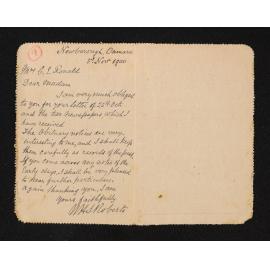 Newborough, Oamaru
5 Nov 1900
Mrs C. J. Ronald
Dear Madam
I am very much obliged
to you for your letter of 28th Oct
and the two newspapers which I
have received
The Obituary notices are very
interesting to me, and I shall keep
them carefully as records of the past.
If you come across any notes of the
Early days, I shall be very pleased
to hear further particulars.
again thanking you, I am
Yours faithfully
WHS Roberts